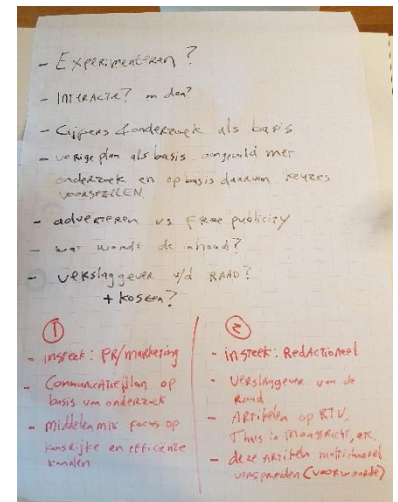 - Experimenteren?
- INTERACTIE? en dan?
- Cijfers & onderzoek als basis
- vorige plan als basis. aangevuld met
onderzoek en op basis daarvan keuzes
VOORSTELLEN.
- adverteren vs free publicity
- wat wordt de inhoud?
- verslaggever v/d RAAD?
+ kosten?
①
- insteek: PR/marketing
- Communicatieplan op
basis van onderzoek
- middelenmix focus op
kansrijke en efficiënte
kanalen
②
- insteek: Redactioneel
- verslaggever van de
Raad
- Artikelen op RTV.
Thuis in Maastricht, etc.
- deze artikelen multichannel
verspreiden (voorwaarde)